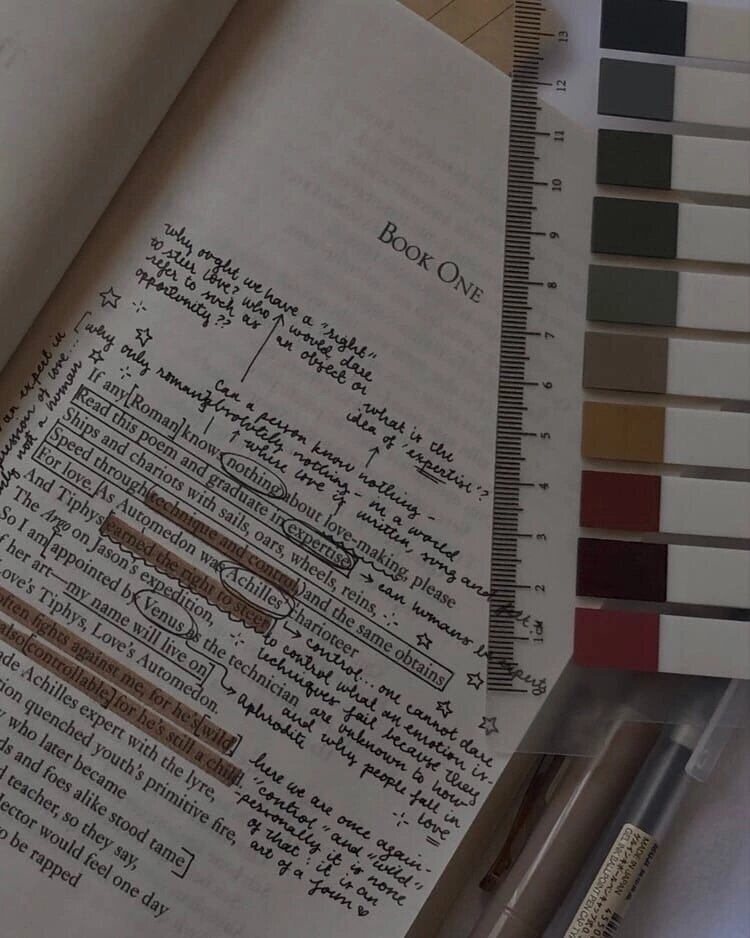 BOOK ONE
why ought we have a "right"
to steer love? who would dare
refer to such as an object or
opportunity??
why only romans?
what is the
idea of 'expertise'?
can a person know nothing -
absolutely nothing - in a world
where love is written, sung and felt
an expert in
of love..
not a human
If any [Roman] knows nothing about love-making, please
Read this poem and graduate in expertise
Ships and chariots with sails, oars, wheels, reins,
Speed through technique and control, and the same obtains
For love. As Automedon was Achilles' charioteer
And Tiphys earned the right to steer
The Argo on Jason's expedition,
So I am appointed by Venus as the technician
of her art—my name will live on
Love's Tiphys, Love's Automedon.
often fights against me, for he's [wild]
also [controllable] for he's still a child
made Achilles expert with the lyre,
quenched youth's primitive fire,
who later became
and foes alike stood tame]
teacher, so they say,
would feel one day
to be rapped
→ can humans be experts
→ control... one cannot dare
to control what an emotion is.
techniques fail because they
are unknown to how
and why people fall in
love
→ aphrodite
here we are once again -
"control" and "wild"
personally it is none
of that! it is an
art of a form
13
12
11
10
9
8
7
6
5
4
3
2
1cm
MADE IN JAPAN
GEL INK BALL POINT PEN CAP TYPE